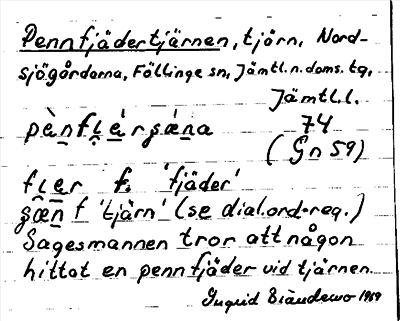 Pennfjädertjärnen, tjärn, Nord-
sjögårdarna, Föllinge sn, Jämtl. n. doms. tg,
Jämtl. l.
pènflèrʒæna 74
(Gn 59)
fler f. 'fjäder'
ʒæn f 'tjärn' (se dial.ord-reg.)
Sagesmannen tror att någon
hittat en pennfjäder vid tjärnen
Ingrid 1969